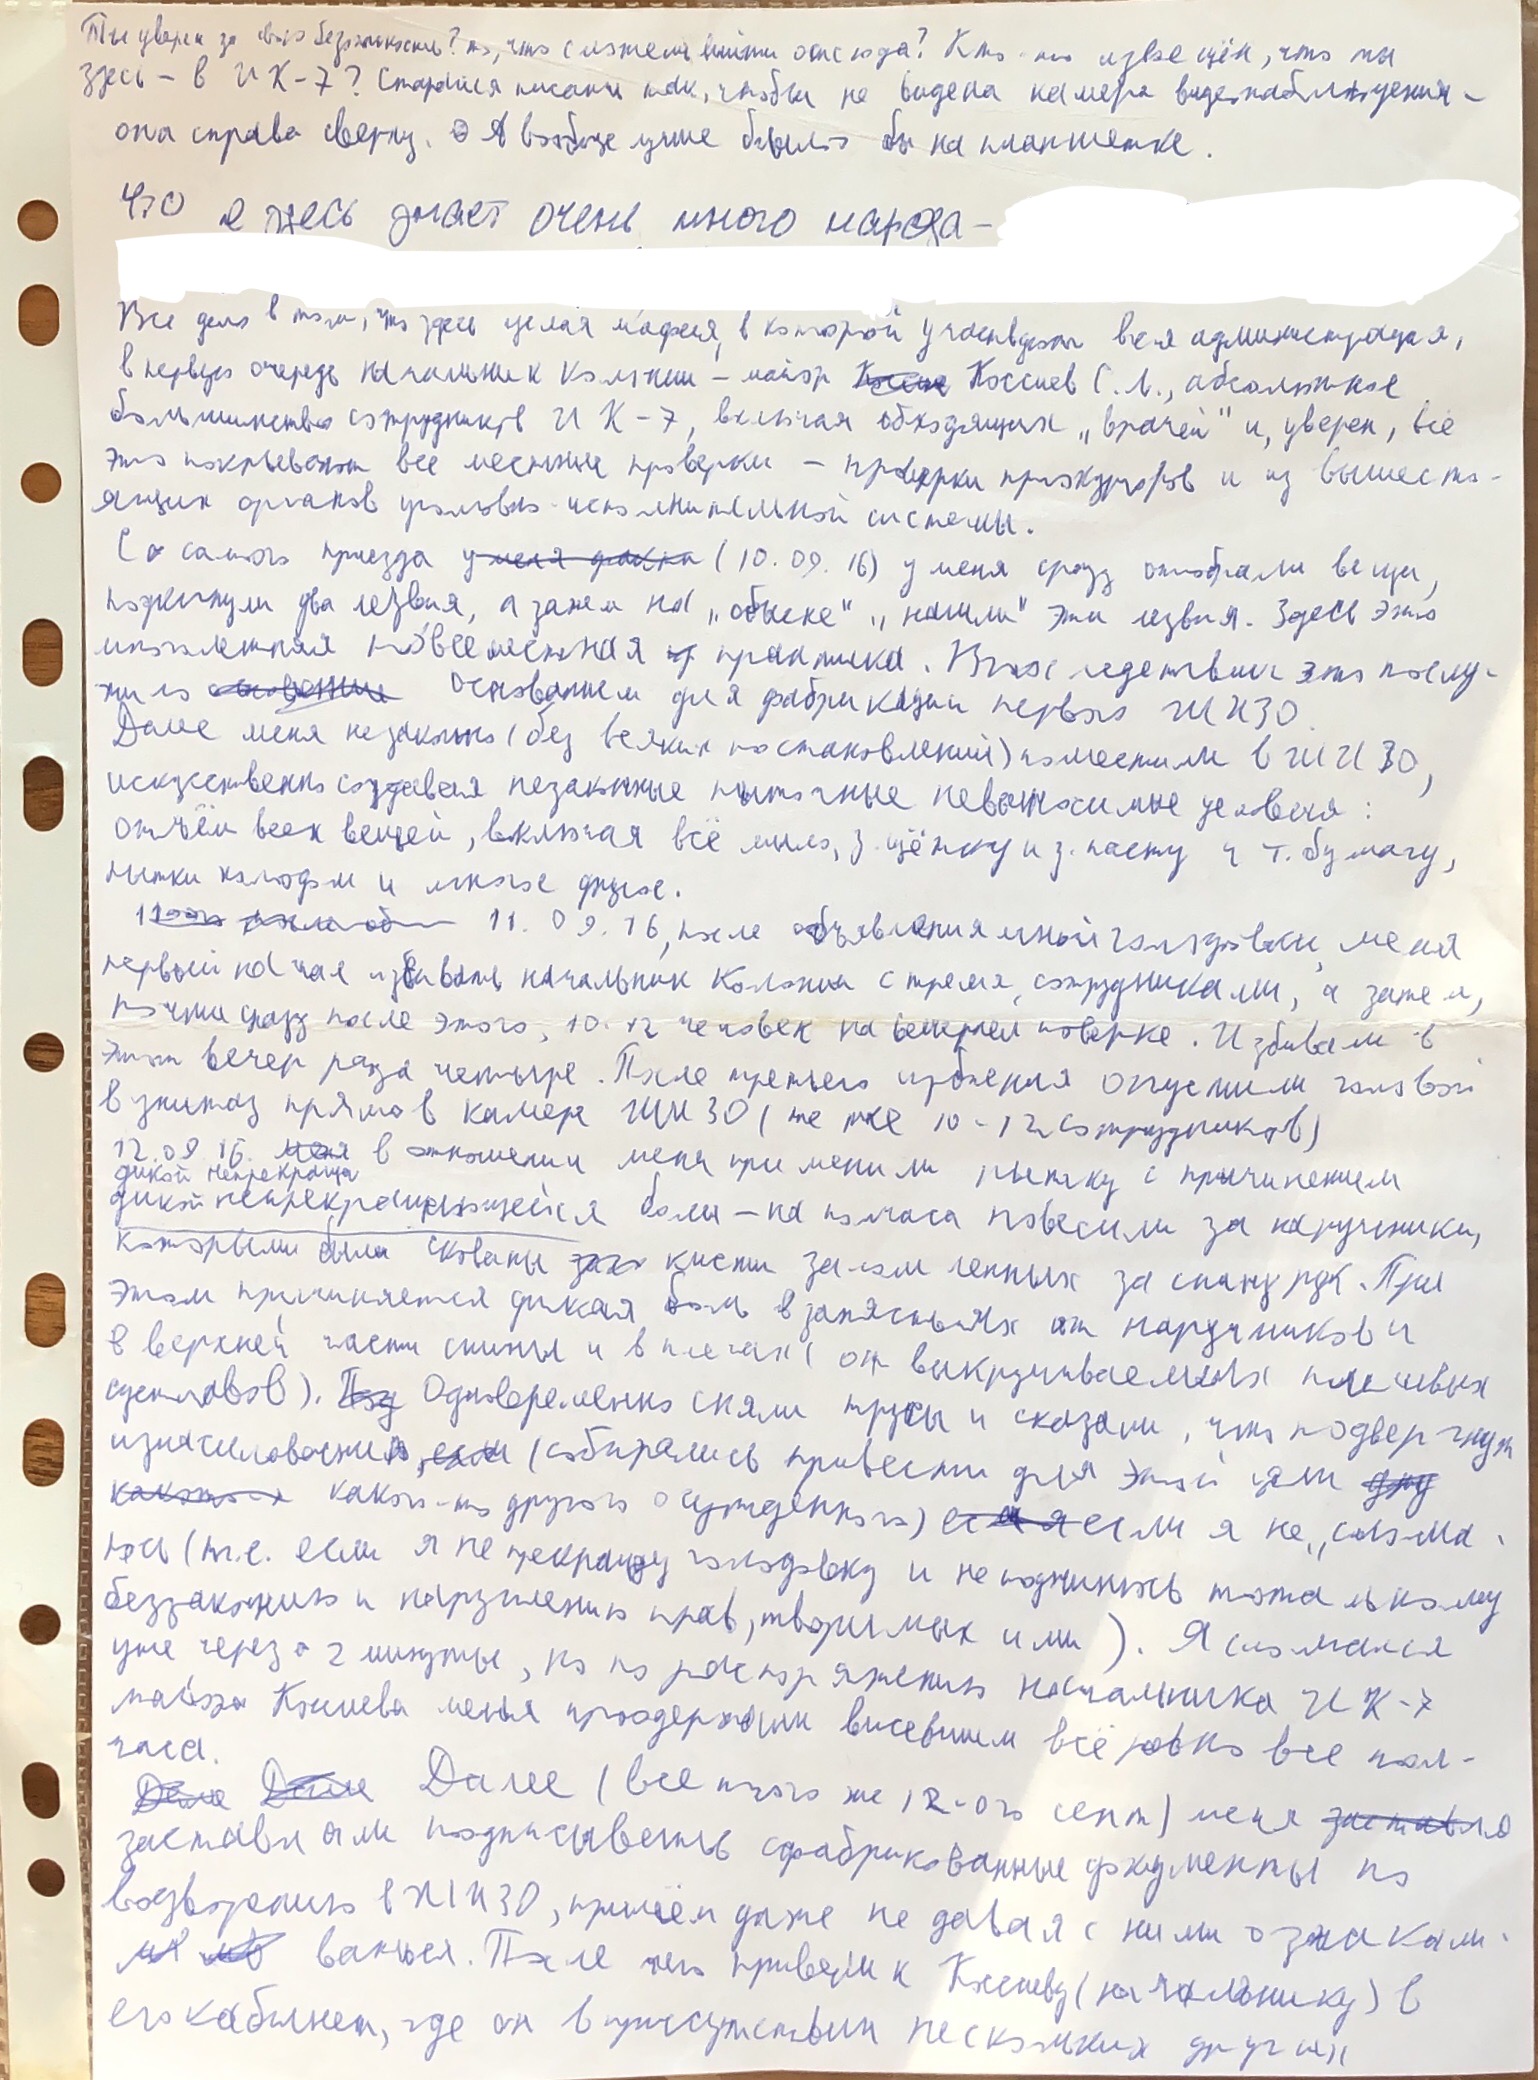 Ты уверен за свою безопасность? то, что сможешь выйти отсюда? Кто-то извещён, что ты
здесь – в ИК-7? Старайся писать так, чтобы не видела камера видеонаблюдения –
она справа сверху. А вообще лучше было бы на планшетке.
Что я здесь знает очень много народа –
Всё дело в том, что здесь целая мафия, в которой участвует вся администрация,
в первую очередь начальник колонии – майор Коссиев С.Л., абсолютное
большинство сотрудников ИК-7, включая обходящих „врачей" и, уверен, всё
это покрывают все местные проверки – проверки прокуроров и из вышесто-
ящих органов уголовно-исполнительной системы.
С самого приезда (10.09.16) у меня сразу отобрали вещи,
подкинули два лезвия, а затем на „обыске" „нашли" эти лезвия. Здесь это
многолетняя повсеместная практика. Впоследствии это послу-
жило основанием для фабрикации первого ШИЗО.
Далее меня незаконно (без всяких постановлений) поместили в ШИЗО,
искусственно создавая незаконные пыточные невыносимые условия:
отъём всех вещей, включая всё мыло, з. щётку и з. пасту и т. бумагу,
пытки холодом и многое другое.
11.09.16, после объявления мной голодовки, меня
первый начал избивать начальник колонии с тремя сотрудниками, а затем,
почти сразу после этого, 10-12 человек на вечерней поверке. Избивали в
этот вечер раза четыре. После третьего избиения опустили головой
в унитаз прямо в камере ШИЗО (те же 10-12 сотрудников)
12.09.16. в отношении меня применили пытку с причинением
дикой непрекраща
дикой непрекращающейся боли – на полчаса повесили за наручники,
которыми были скованы кисти заломленных за спину рук. При
этом причиняется дикая боль в запястьях от наручников и
в верхней части спины и в плечах (от выкручиваемых плечевых
суставов). Одновременно сняли трусы и сказали, что подвергнут
изнасилованию, (собирались привести для этой цели
какого-то другого осужденного) если я не „слома-
юсь (т.е. если я не прекращу голодовку и не подчинюсь тотальному
беззаконию и нарушению прав, творимых ими). Я сломался
уже через 2 минуты, но по распоряжению начальника ИК-7
майора Коссиева меня продержали висевшем всё равно все пол-
часа.
Далее (всё того же 12-ого сент) меня
заставляли подписывать сфабрикованные документы по
водворению в ШИЗО, причём даже не давая с ними ознакоми-
ваться. После чего привели к Коссиеву (начальнику) в
его кабинет, где он в присутствии нескольких других